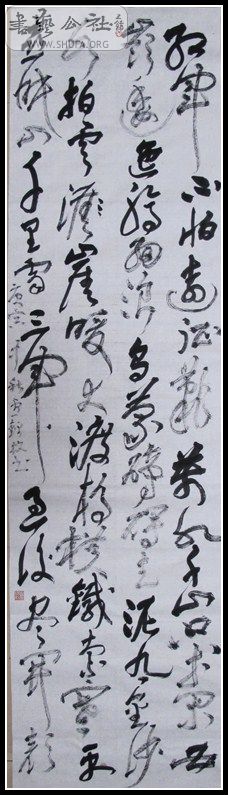 書藝公社
WWW.SHDFA.ORG
红軍不怕遠征難萬水千山只等閑五
嶺逶迤騰細浪烏蒙磅礴走泥丸金沙
水拍雲崖暖大渡橋橫鐵索寒更
喜岷山千里雪三軍過後盡開顏
庚寅年秋